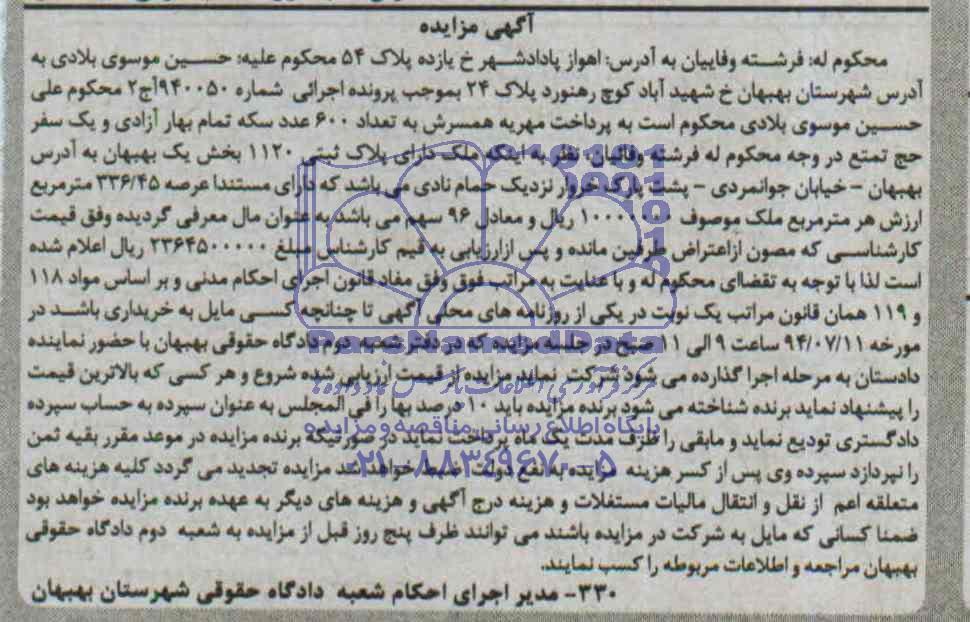 آگهی مزایده
محکوم له: فرشته وفاییان به آدرس: اهواز پادادشهر خ یازده پلاک ۵۴ محکوم علیه: حسین موسوی بلادی به
آدرس شهرستان بهبهان خ شهید آباد کوچ رهنورد پلاک ۲۴ بموجب پرونده اجرائی شماره ۹۴۰۰۵۰آج۲ محکوم علی
حسین موسوی بلادی محکوم است به پرداخت مهریه همسرش به تعداد ۶۰۰ عدد سکه تمام بهار آزادی و یک سفر
حج تمتع در وجه محکوم له فرشته وفائیان، نظر به اینکه ملک دارای پلاک ثبتی ۱۱۲۰ بخش یک بهبهان به آدرس
بهبهان - خیابان جوانمردی - پشت پارک خروار نزدیک حمام نادی می باشد که دارای مستندا عرصه ۳۳۶/۴۵ مترمربع
ارزش هر مترمربع ملک موصوف ۱۰۰۰۰۰۰۰ ریال و معادل ۹۶ سهم می باشد به عنوان مال معرفی گردیده وفق قیمت
کارشناسی که مصون ازاعتراض طرفین مانده و پس ازارزیابی به قیم کارشناس مبلغ ۲۳۶۴۵۰۰۰۰۰ ریال اعلام شده
است لذا با توجه به تقضاای محکوم له و با عنایت به مراتب فوق وفق مفاد قانون اجرای احکام مدنی و بر اساس مواد ۱۱۸
و ۱۱۹ همان قانون مراتب یک نوبت در یکی از روزنامه های محلی آگهی تا چنانچه کسی مایل به خریداری باشد در
مورخه ۹۴/۰۷/۱۱ ساعت ۹ الی ۱۱ صبح در جلسه مزایده که در دفتر شعبه دوم دادگاه حقوقی بهبهان با حضور نماینده
دادستان به مرحله اجرا گذارده می شود شرکت نماید مزایده از قیمت ارزیابی شده شروع و هر کسی که بالاترین قیمت
را پیشنهاد نماید برنده شناخته می شود برنده مزایده باید ۱۰ درصد بها را فی المجلس به عنوان سپرده به حساب سپرده
دادگستری تودیع نماید و مابقی را ظرف مدت یک ماه پرداخت نماید در صورتیکه برنده مزایده در موعد مقرر بقیه ثمن
را نپردازد سپرده وی پس از کسر هزینه مزایده به نفع دولت ضبط خواهد شد مزایده تجدید می گردد کلیه هزینه های
متعلقه اعم از نقل و انتقال مالیات مستغلات و هزینه درج آگهی و هزینه های دیگر به عهده برنده مزایده خواهد بود
ضمنا کسانی که مایل به شرکت در مزایده باشند می توانند ظرف پنج روز قبل از مزایده به شعبه دوم دادگاه حقوقی
بهبهان مراجعه و اطلاعات مربوطه را کسب نمایند.
۳۳۰- مدیر اجرای احکام شعبه دادگاه حقوقی شهرستان بهبهان
ParsNamadData
پایگاه اطلاع رسانی مناقصه و مزایده
۰۲۱-۸۸۳۴۹۶۷۰-۵